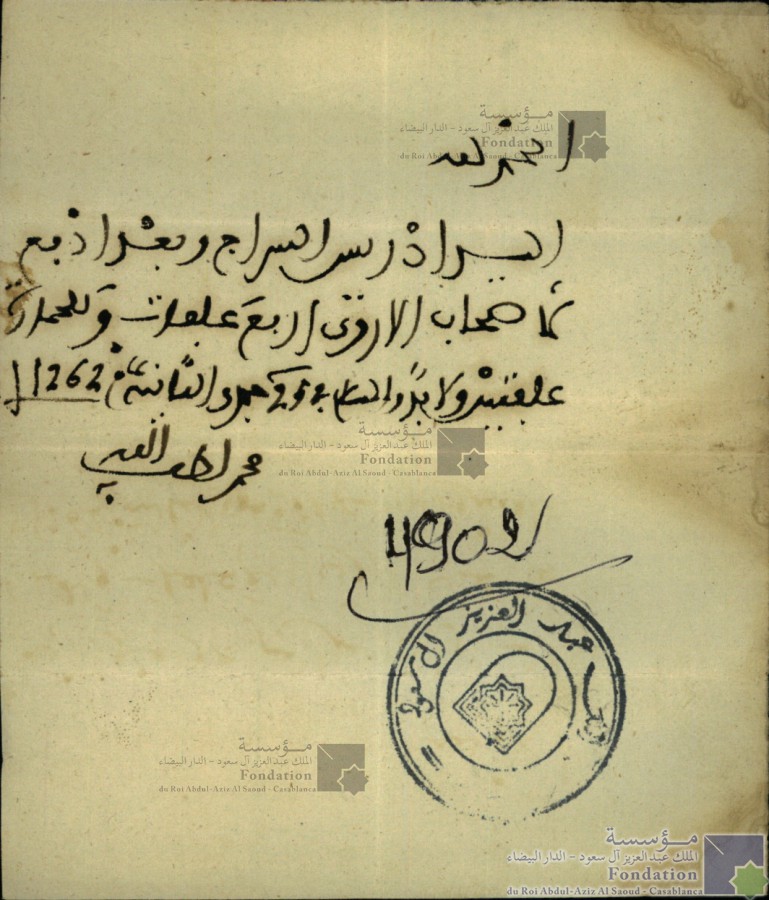 مؤسسة
الملك عبد العزيز آل سعود - الدار البيضاء
Fondation
du Roi Abdul-Aziz Al Saoud - Casablanca
الحمد لله
السيد ادريس السراج وبعد ادفع
اصحاب اربع علفات
علفتين ولا بد والسلام في الثانية 1262
محمد لطف الله
مؤسسة
الملك عبد العزيز آل سعود - الدار البيضاء
Fondation
du Roi Abdul-Aziz Al Saoud - Casablanca
4902
عبد العزيز آل سعود
مؤسسة
الملك عبد العزيز آل سعود - الدار البيضاء
Fondation
du Roi Abdul-Aziz Al Saoud - Casablanca
مؤسسة
الملك عبد العزيز آل سعود - الدار البيضاء
Fondation
du Roi Abdul-Aziz Al Saoud - Casablanca